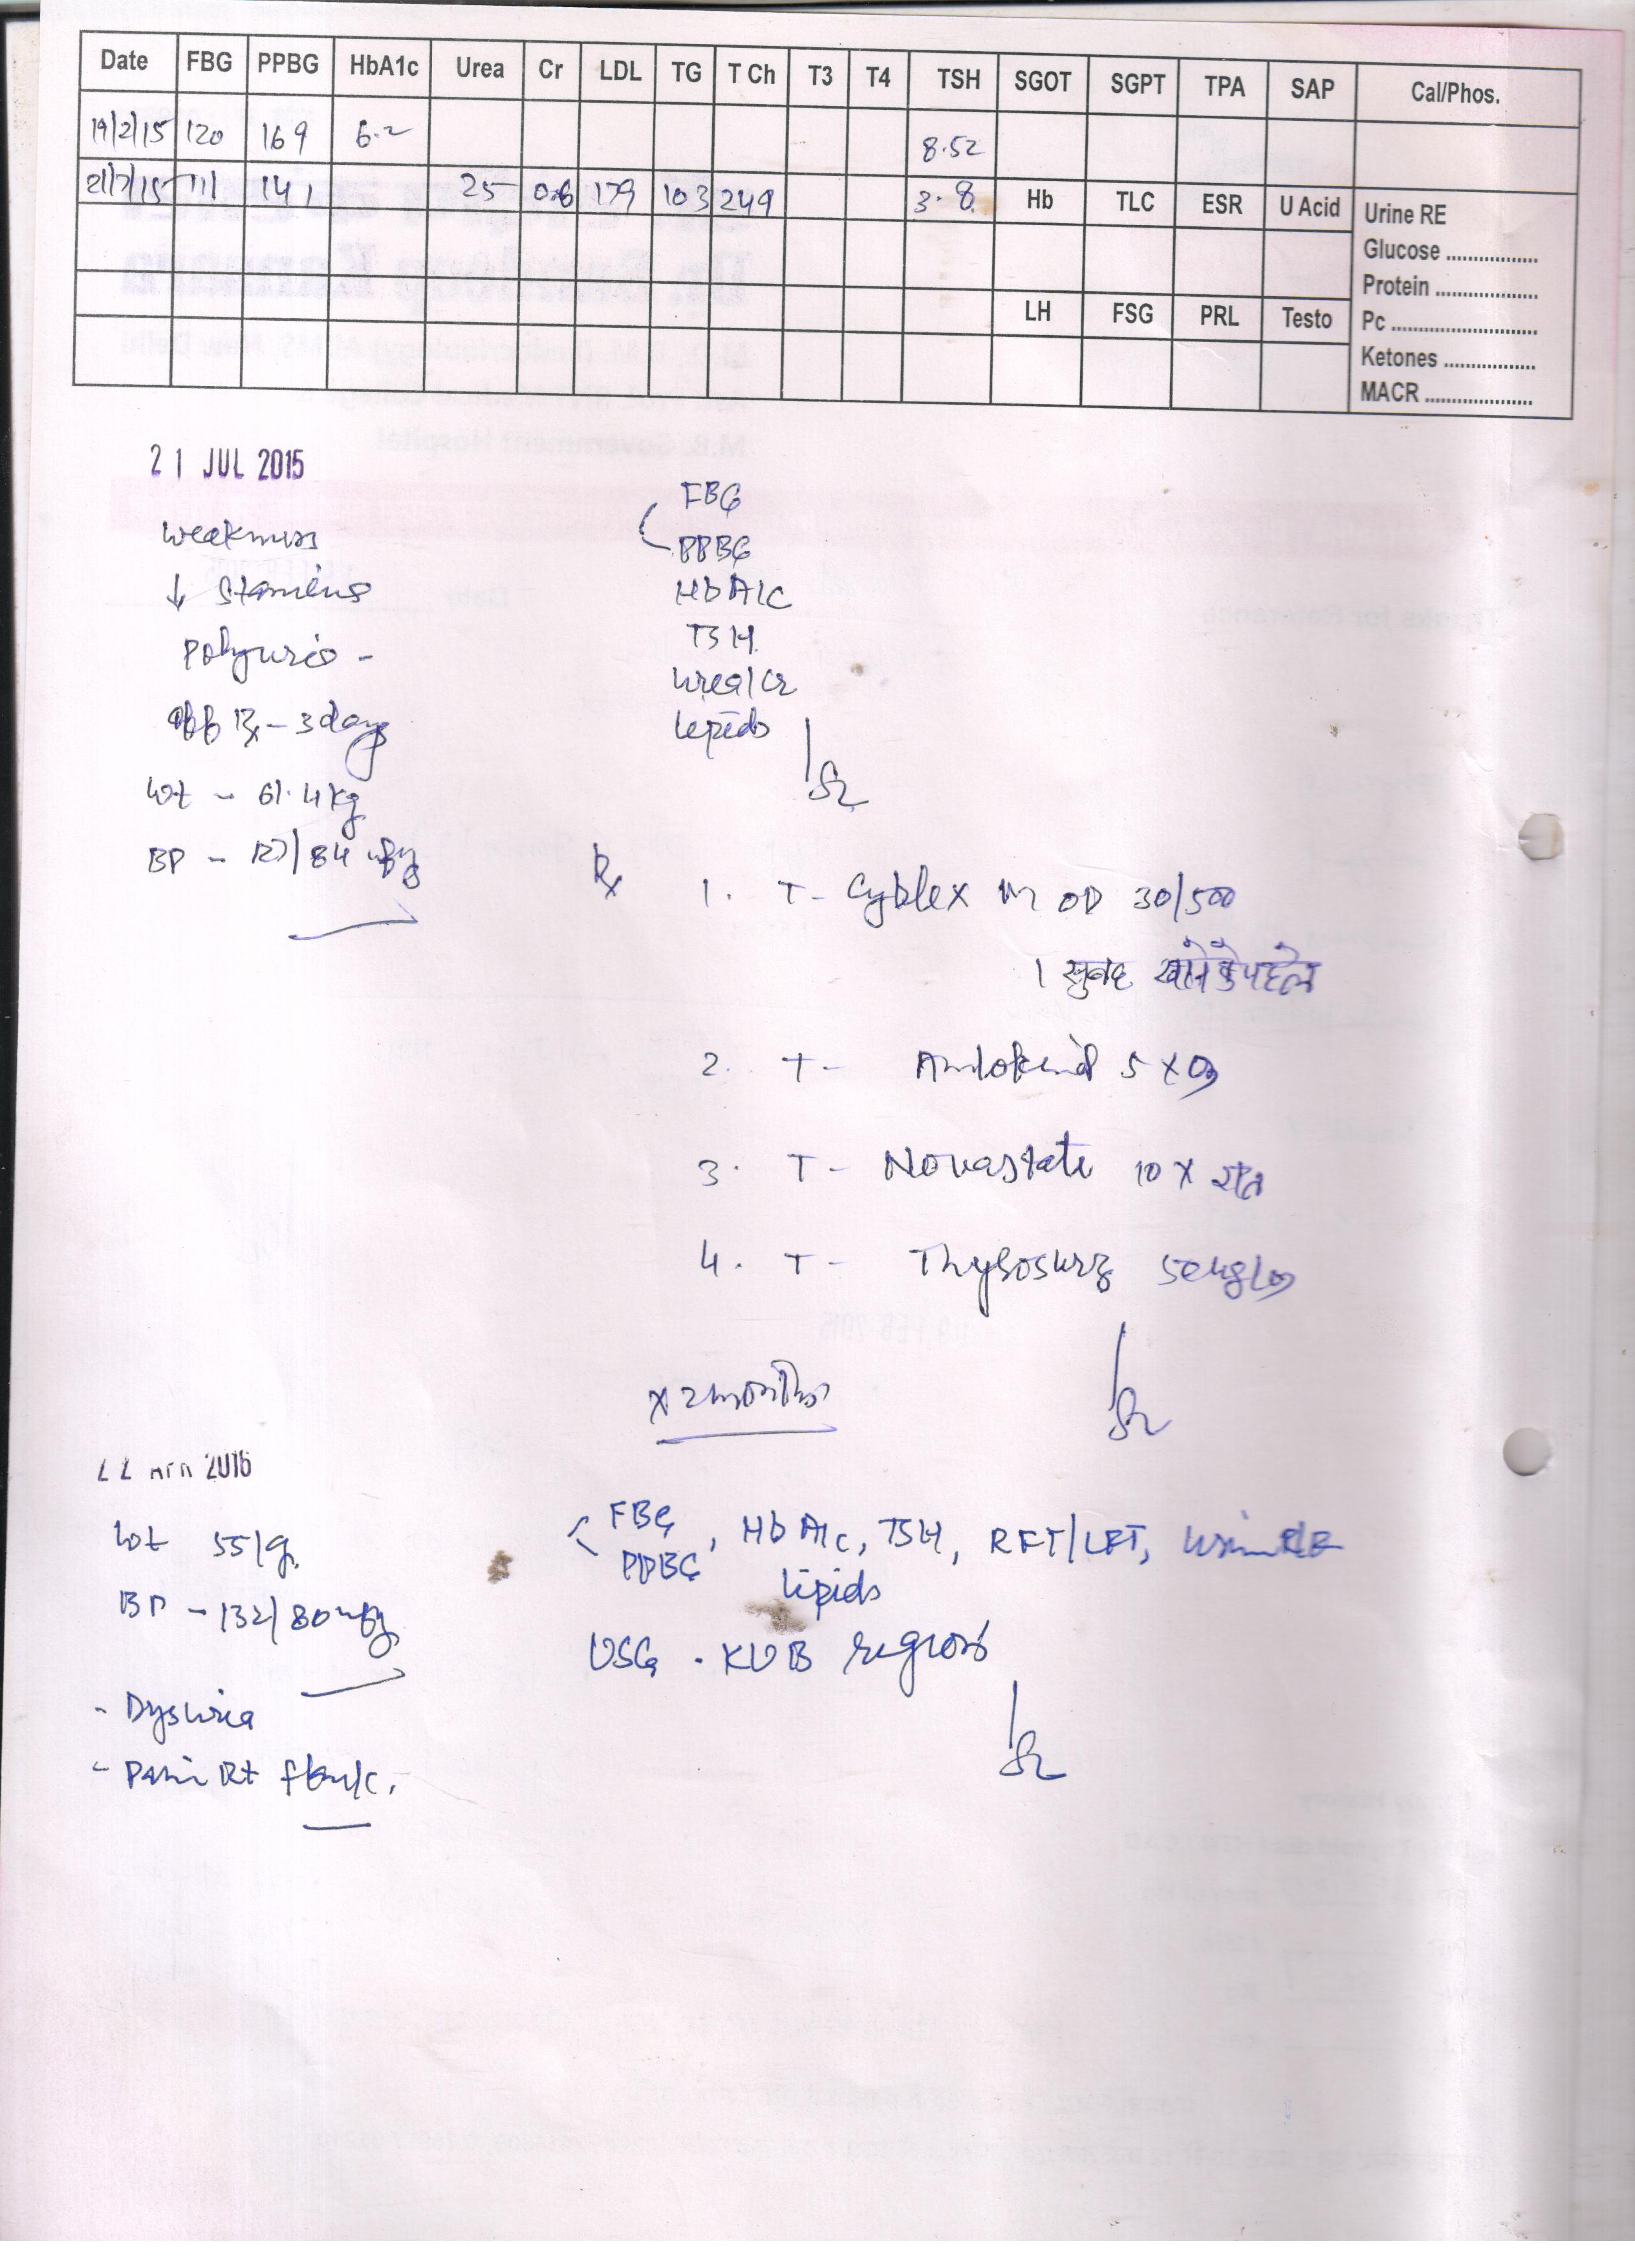 Date FBG PPBG HbA1c Urea Cr LDL TG T Ch T3 T4 TSH SGOT SGPT TPA SAP Cal/Phos.
19/2/15 120 169 6.2 8.52
21/7/15 111 141 25 0.6 179 103 249 3.8 Hb TLC ESR U Acid Urine RE
Glucose ................
Protein ..................
LH FSG PRL Testo Pc .........................
Ketones ................
MACR ...................
21 JUL 2015
Weakness
↓ Stamina
Polyuria -
off Rx - 3 days
Wt - 61.4 kg
BP - 127/84 mmHg
FBG
PPBG
HbA1C
TSH
Urea/Cr
Lipids
Rx
1. T- Cyblex M OD 30/500
1 सुबह खाने के पहले
2. T- Amlokind 5 x OD
3. T- Novastat 10 x रात
4. T- Thyrosurz 50 ug/OD
x 2 months
22 APR 2016
Wt 55 kg
BP - 132/80 mmHg
- Dysuria
- Pain Rt flank.
FBG, HbA1c, TSH, RFT/LFT, Urine RE
PPBG Lipids
USG - KUB region